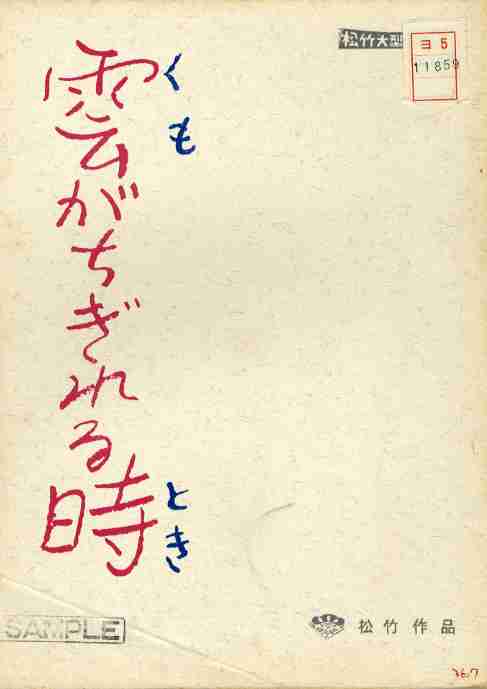 松竹大型
ヨ5
11859
雲がちぎれる時
くも
とき
SAMPLE
松竹作品
36.7